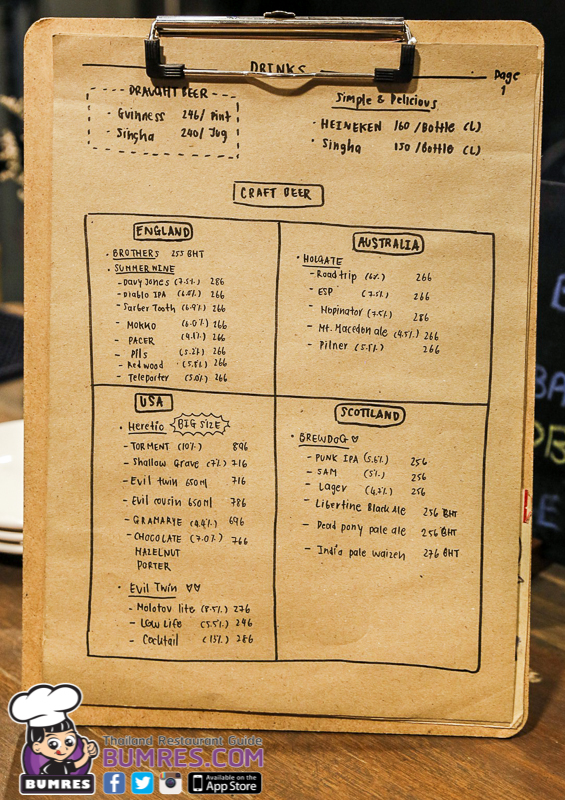 DRINKS
Page
1
DRAUGHT BEER
· Guinness 246/ Pint
· Singha 240/ Jug
Simple & Delicious
· HEINEKEN 160 /Bottle (L)
· Singha 150 /Bottle (L)
CRAFT BEER
ENGLAND
· BROTHERS 255 BHT
· SUMMER WINE
- Davy Jones (7.5%) 286
- Diablo IPA (6.5%) 266
- Saber Tooth (6.9%) 266
- MOKKO (6.0%) 266
- PACER (4.1%) 266
- Pils (5.2%) 266
- Redwood (5.5%) 266
- Teleporter (5.0%) 266
AUSTRALIA
· HOLGATE
- Road trip (6%) 266
- ESP (7.5%) 266
- Hopinator (7.5%) 286
- Mt. Macedon ale (4.5%) 266
- Pilner (5.5%) 266
USA
· Heretic BIG SIZE
- TORMENT (10%) 896
- Shallow Grave (7%) 716
- Evil twin 650ml 716
- Evil cousin 650ml 786
- GRAMARYE (4.4%) 696
- CHOCOLATE (7.0%) 766
HAZELNUT
PORTER
· Evil Twin ♡♡
- Molotov lite (8.5%) 276
- Low Life (5.5%) 246
- Cocktail (13%) 286
SCOTLAND
· BREWDOG ♡
- PUNK IPA (5.6%) 256
- 5AM (5%) 256
- Lager (4.7%) 256
- Libertine Black Ale 256 BHT
- Dead pony pale ale 256 BHT
- India pale weizen 276 BHT
Thailand Restaurant Guide
BUMRES.COM
BUMRES
Available on the
App Store